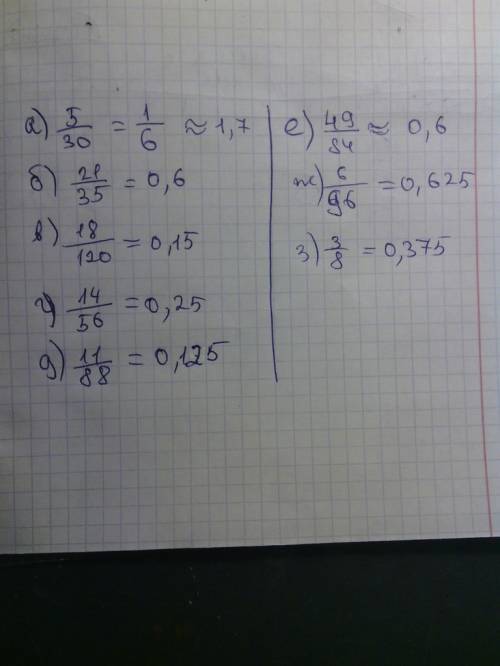 а) 5/30 = 1/6 ≈ 1,7
б) 21/35 = 0,6
в) 18/120 = 0,15
г) 14/56 = 0,25
д) 11/88 = 0,125
е) 49/84 ≈ 0,6
ж) 6/96 = 0,625
з) 3/8 = 0,375